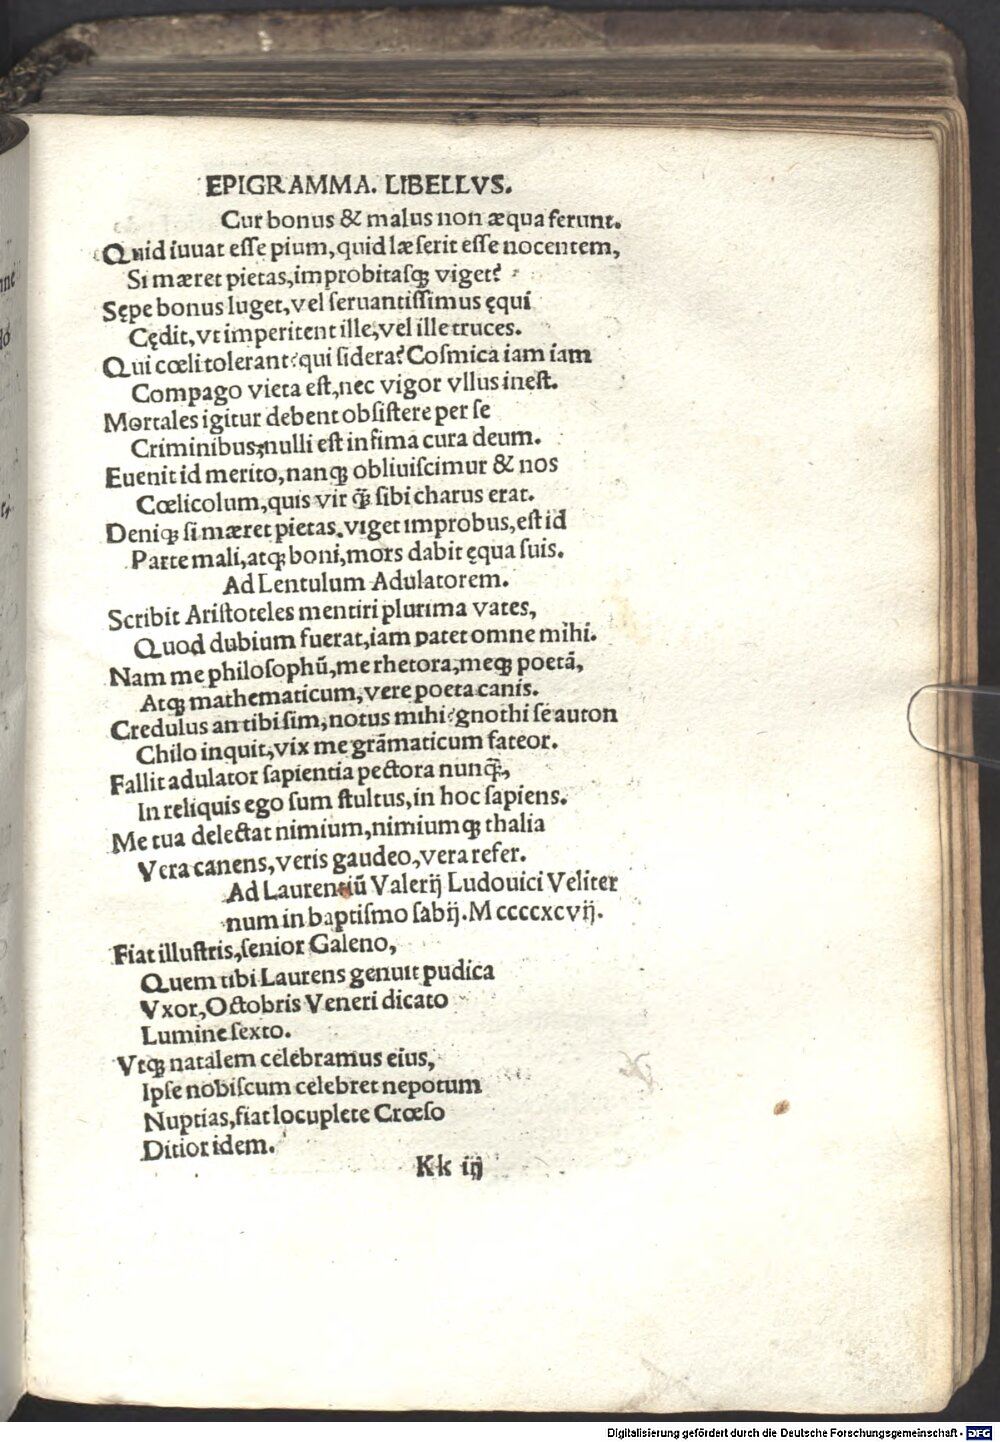 EPIGRAMMA. LIBELLVS.
Cur bonus & malus non æqua ferunt.
Quid iuuat esse pium, quid læserit esse nocentem,
Si mæret pietas, improbitasqꝫ viget?
Sępe bonus luget, vel seruantissimus ęqui
Cędit, vt imperitent ille, vel ille truces.
Qui cœli tolerant? qui sidera? Cosmica iam iam
Compago vieta est, nec vigor vllus inest.
Mortales igitur debent obsistere per se
Criminibus, nulli est infima cura deum.
Euenit id merito, nanqꝫ obliuiscimur & nos
Cœlicolum, quis vir q̃ꝫ sibi charus erat.
Deniqꝫ si mæret pietas, viget improbus, est id
Parte mali, atqꝫ boni, mors dabit ęqua suis.
Ad Lentulum Adulatorem.
Scribit Aristoteles mentiri plurima vates,
Quod dubium fuerat, iam patet omne mihi.
Nam me philosophũ, me rhetora, meqꝫ poetã,
Atqꝫ mathematicum, vere poeta canis.
Credulus an tibi sim, notus mihi? gnothi seauton
Chilo inquit, vix me grãmaticum fateor.
Fallit adulator sapientia pectora nunq̃ꝫ,
In reliquis ego sum stultus, in hoc sapiens.
Me tua delectat nimium, nimiumqꝫ thalia
Vera canens, veris gaudeo, vera refer.
Ad Laurentiũ Valerij Ludouici Veliter
num in baptismo fabij. M ccccxcvij.
Fiat illustris, senior Galeno,
Quem tibi Laurens genuit pudica
Vxor, Octobris Veneri dicato
Lumine sexto.
Vtqꝫ natalem celebramus eius,
Ipse nobiscum celebret nepotum
Nuptias, fiat locuplete Crœso
Ditior idem.
Kk iij
Digitalisierung gefördert durch die Deutsche Forschungsgemeinschaft - DFG